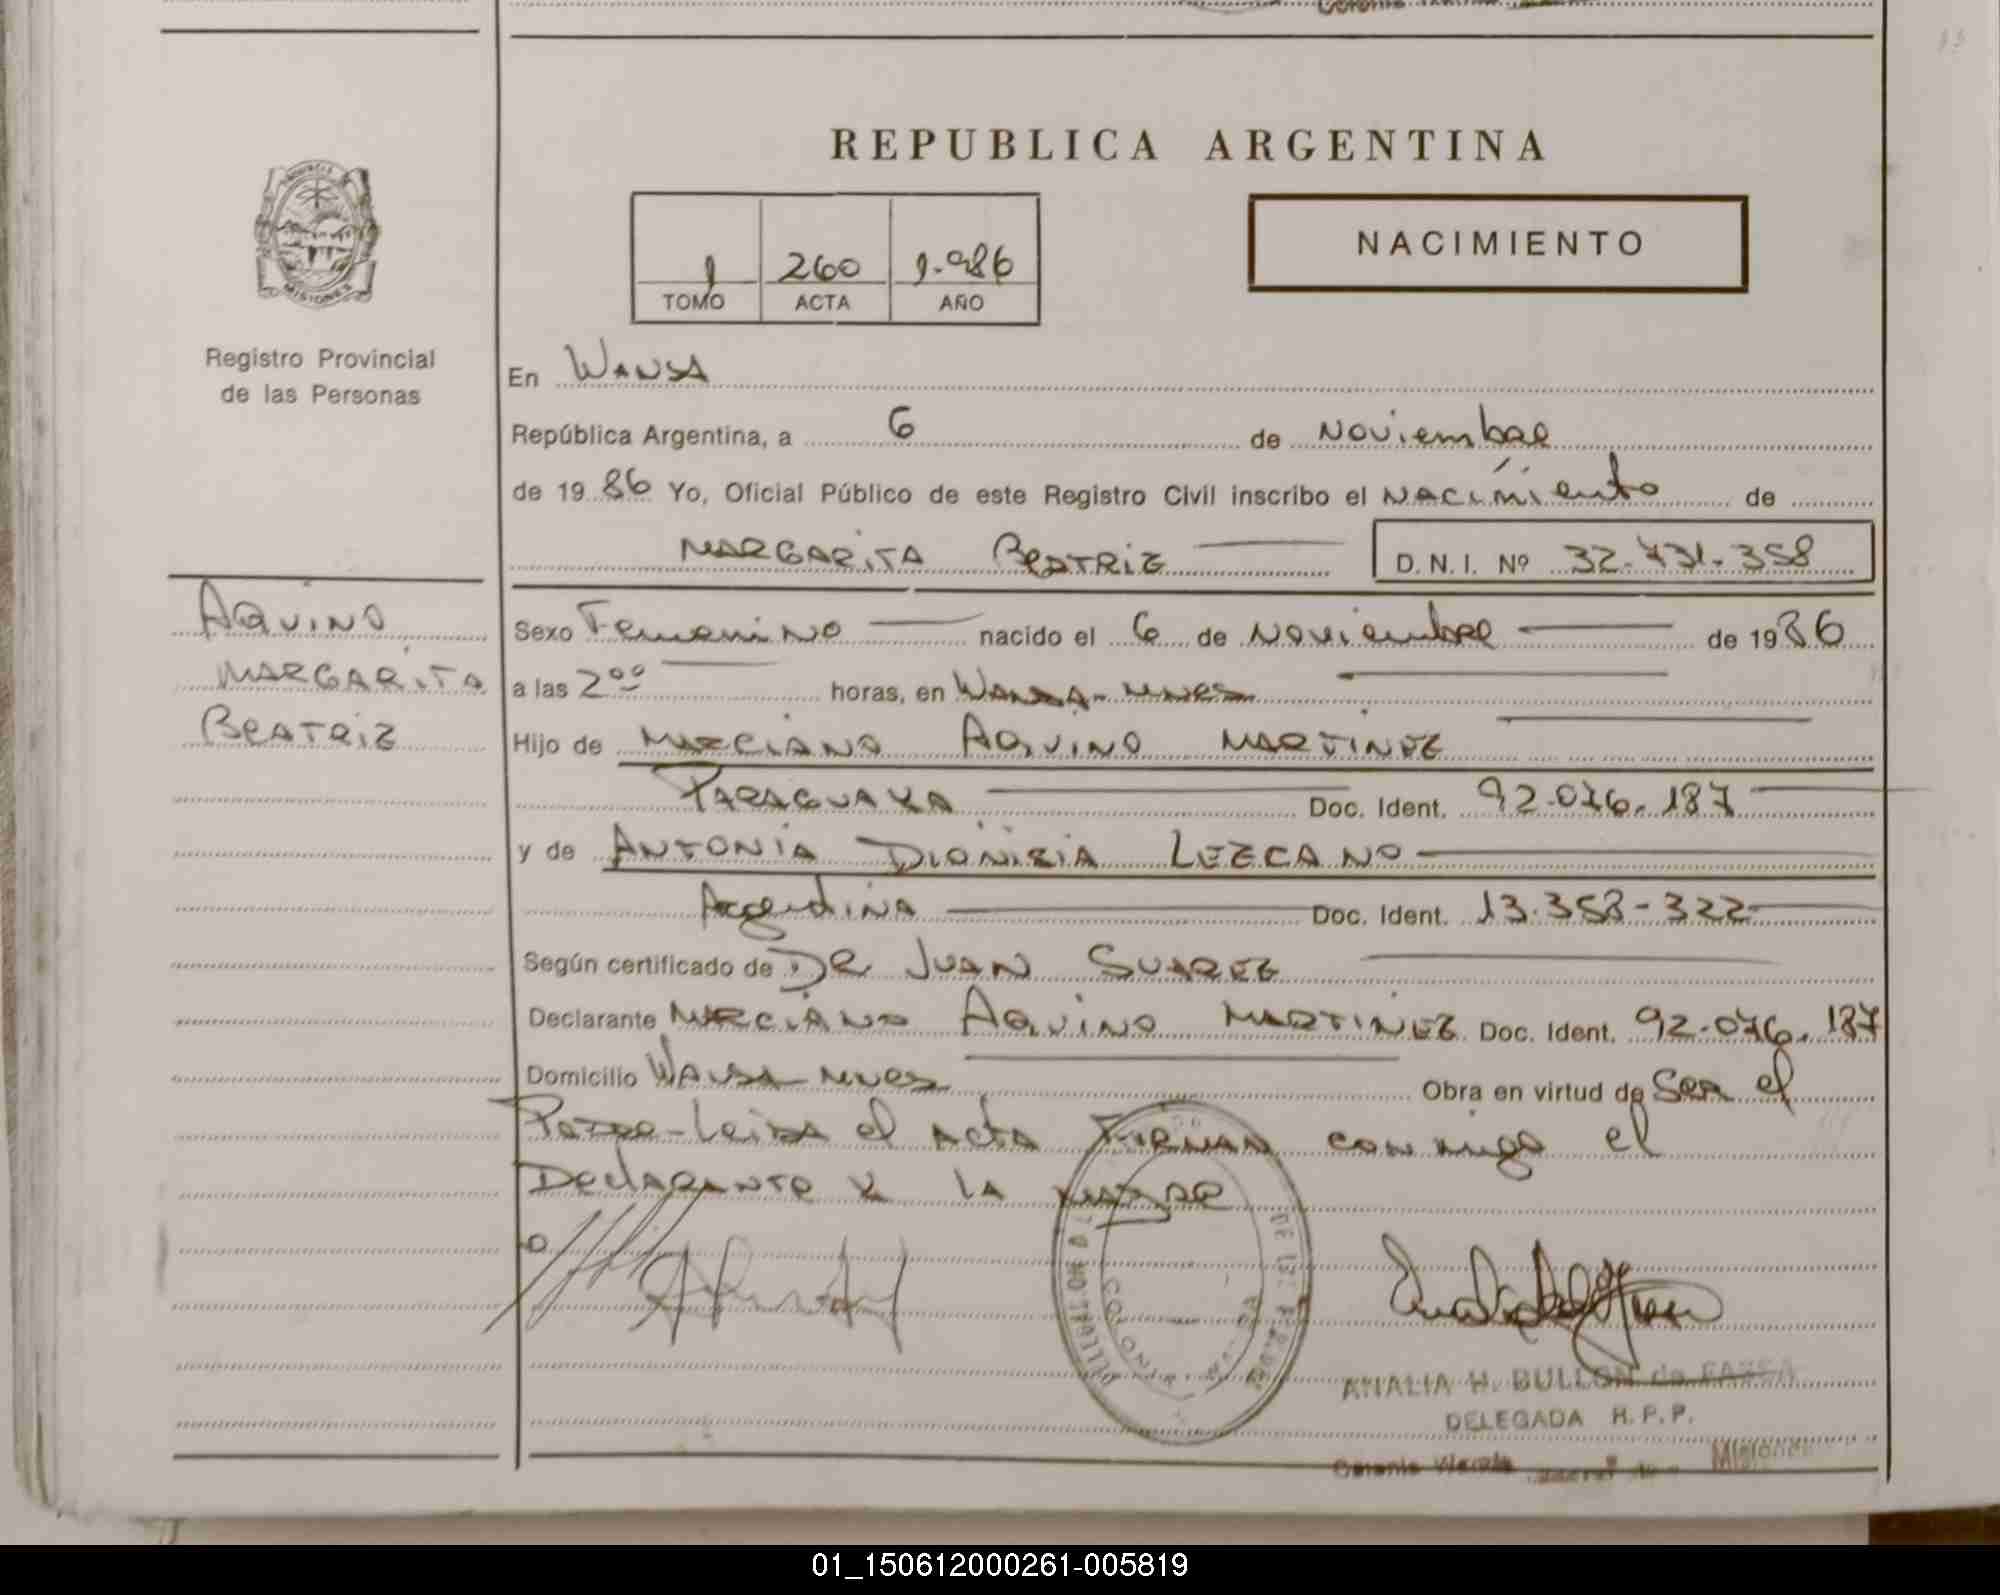 REPUBLICA ARGENTINA
NACIMIENTO
1 260 1.986
TOMO ACTA AÑO
MISIONES
Registro Provincial
de las Personas
En WANDA
República Argentina, a 6 de Noviembre
de 19 86 Yo, Oficial Público de este Registro Civil inscribo el Nacimiento de
MARGARITA BEATRIZ D.N.I. Nº 32.731.358
AQUINO
MARGARITA
BEATRIZ
Sexo Femenino nacido el 6 de Noviembre de 1986
a las 2⁰⁰ horas, en WANDA - MNES
Hijo de MARCIANO AQUINO MARTINEZ
PARAGUAYA Doc. Ident. 92.076.187
y de ANTONIA DIONIZIA LEZCANO
Argentina Doc. Ident. 13.358-322
Según certificado de DR JUAN SUAREZ
Declarante MARCIANO AQUINO MARTINEZ Doc. Ident. 92.076.187
Domicilio WANDA MNES Obra en virtud de Ser el
Padre - Leida el Acta FIRMAN conmigo el
Declarante y LA MADRE
COLONIA WANDA
ANALIA H. BULLON de
DELEGADA R.P.P.
Colonia Wanda Misiones
01_150612000261-005819